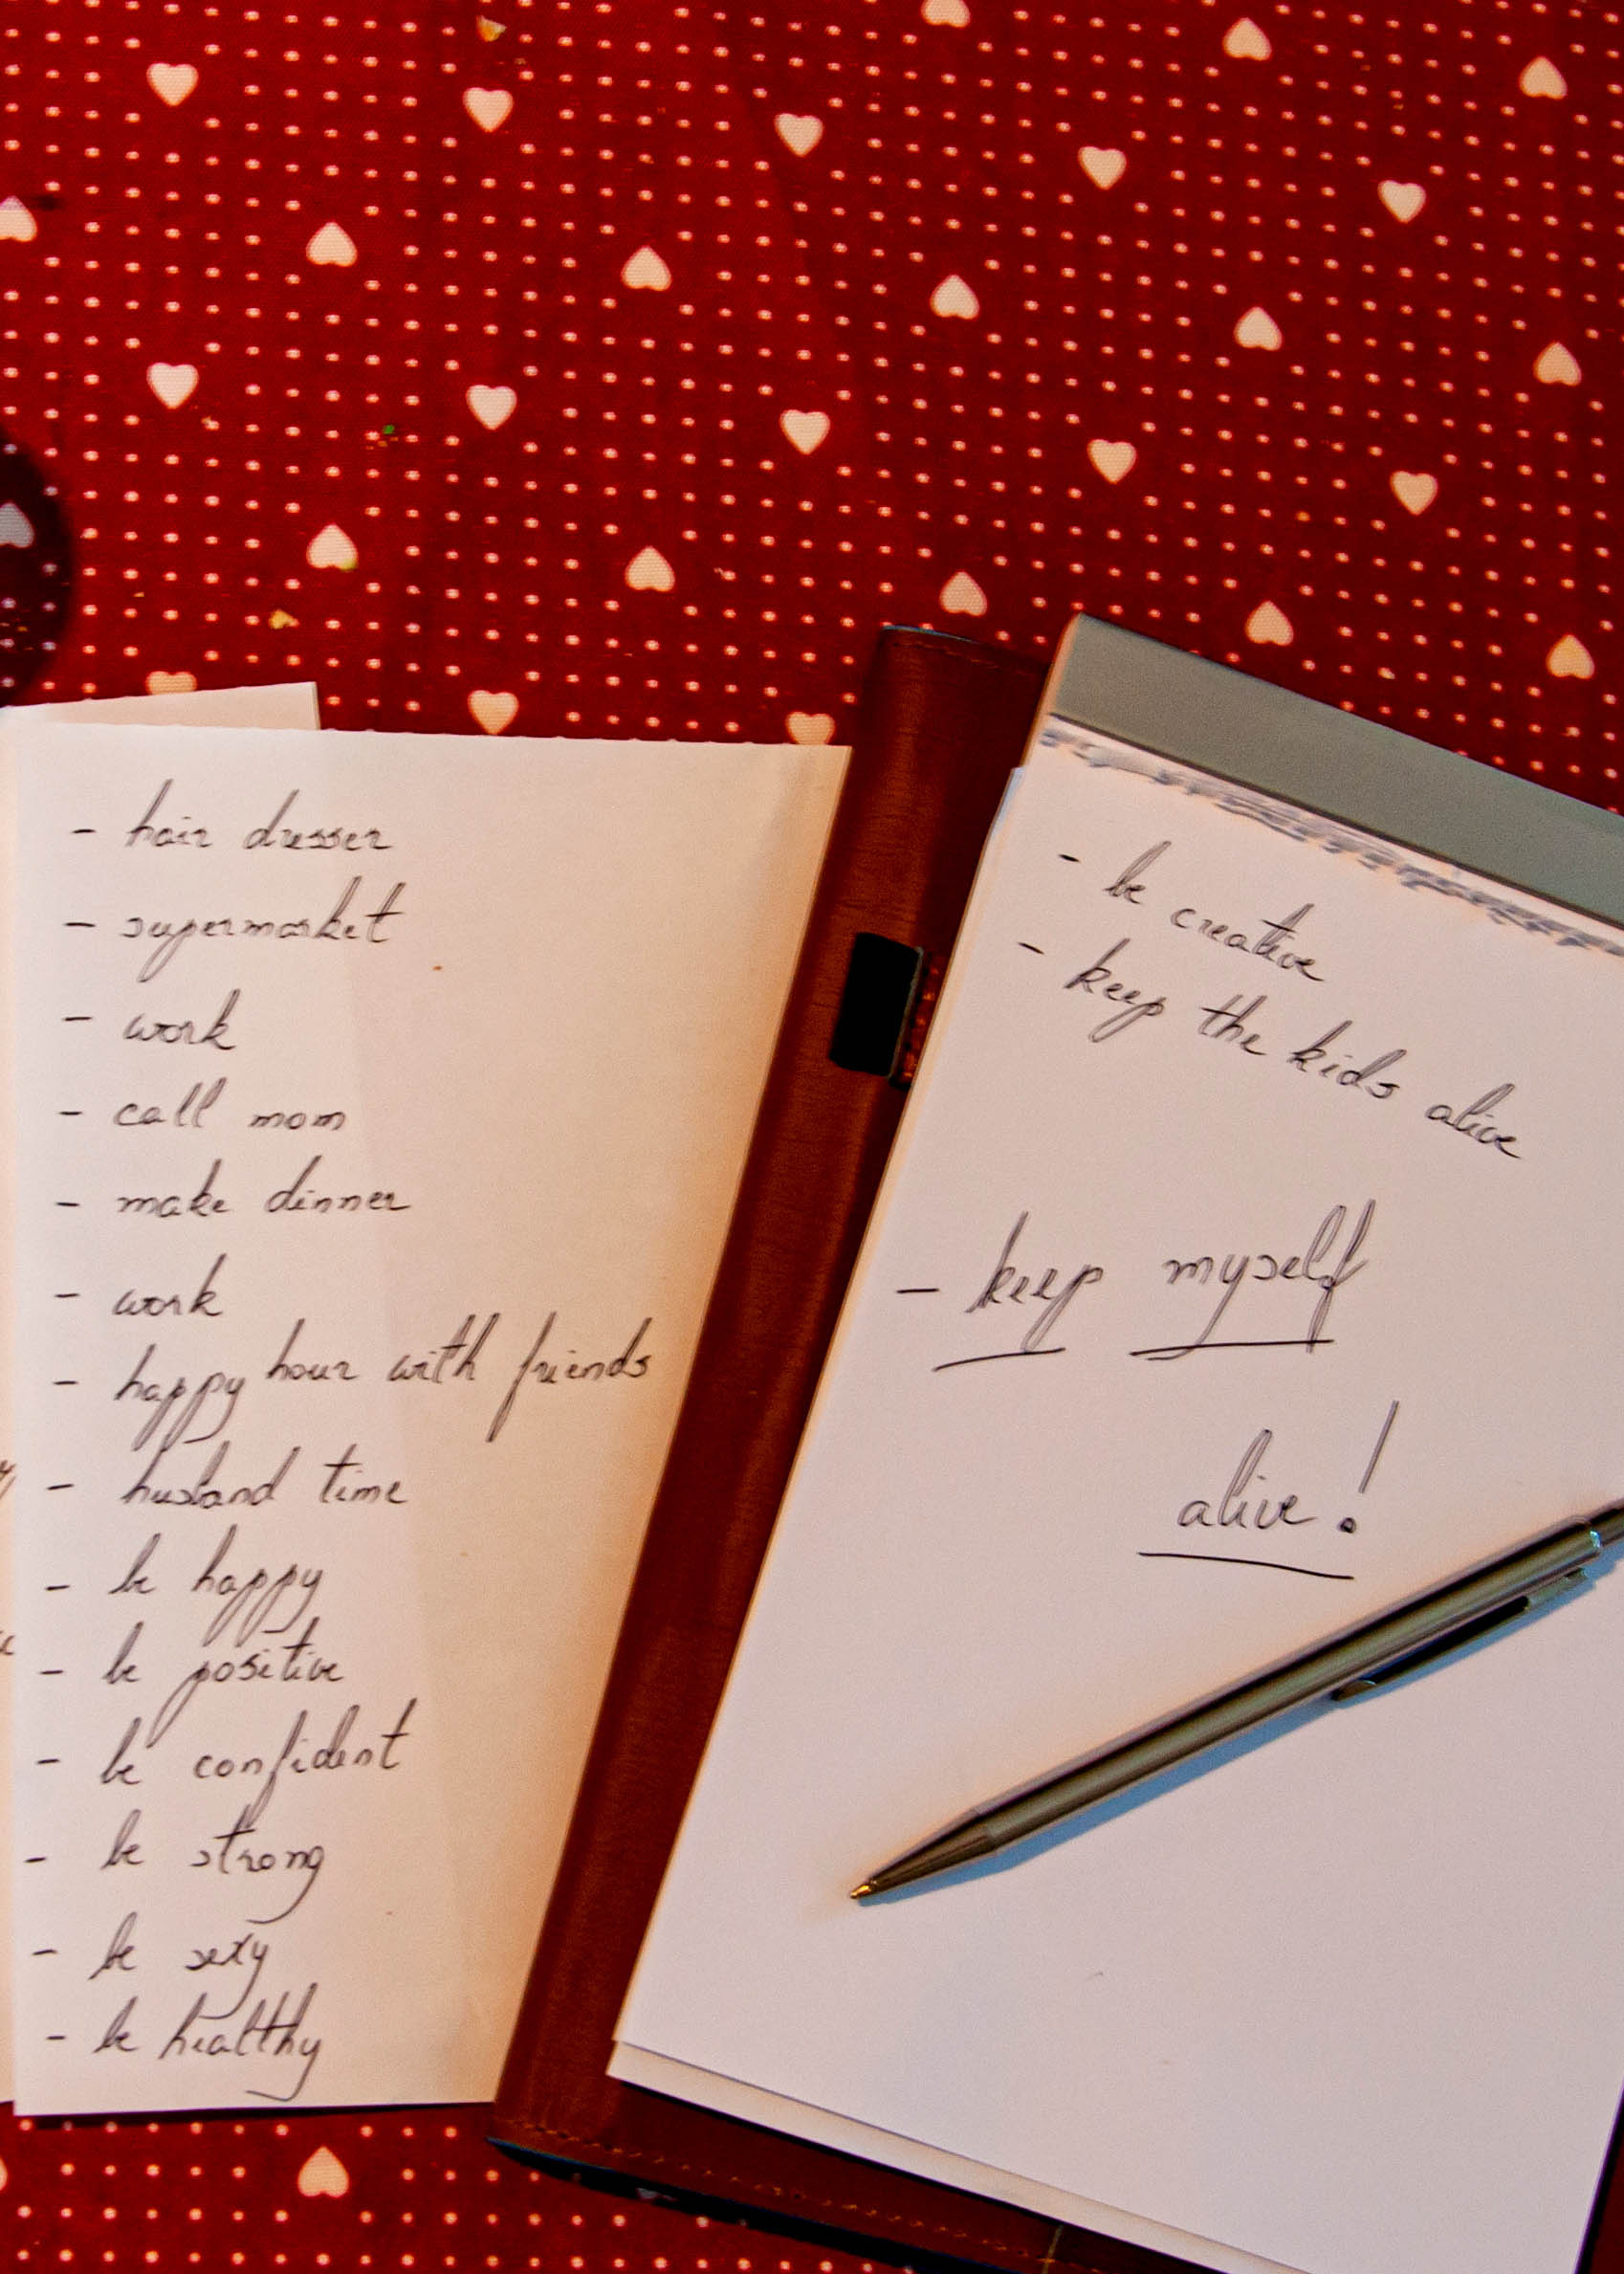 - hair dresser
- supermarket
- work
- call mom
- make dinner
- work
- happy hour with friends
- husband time
- be happy
- be positive
- be confident
- be strong
- be sexy
- be healthy
- be creative
- keep the kids alive
- keep myself
alive!